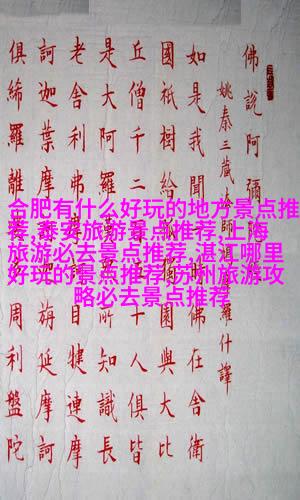 合肥有什么好玩的地方景点推
荐,泰安旅游景点推荐,上海
旅游必去景点推荐,湛江哪里
好玩的景点推荐,苏州旅游攻
略必去景点推荐
佛說阿彌
姚秦三藏法師鳩摩羅什譯
如是我聞佛在舍衛
國祇樹給園與大比
丘僧千二十人俱皆
是大阿羅所知識長
老舍利弗目犍連摩
訶迦葉摩旃延摩訶
俱絺羅離周利盤陀